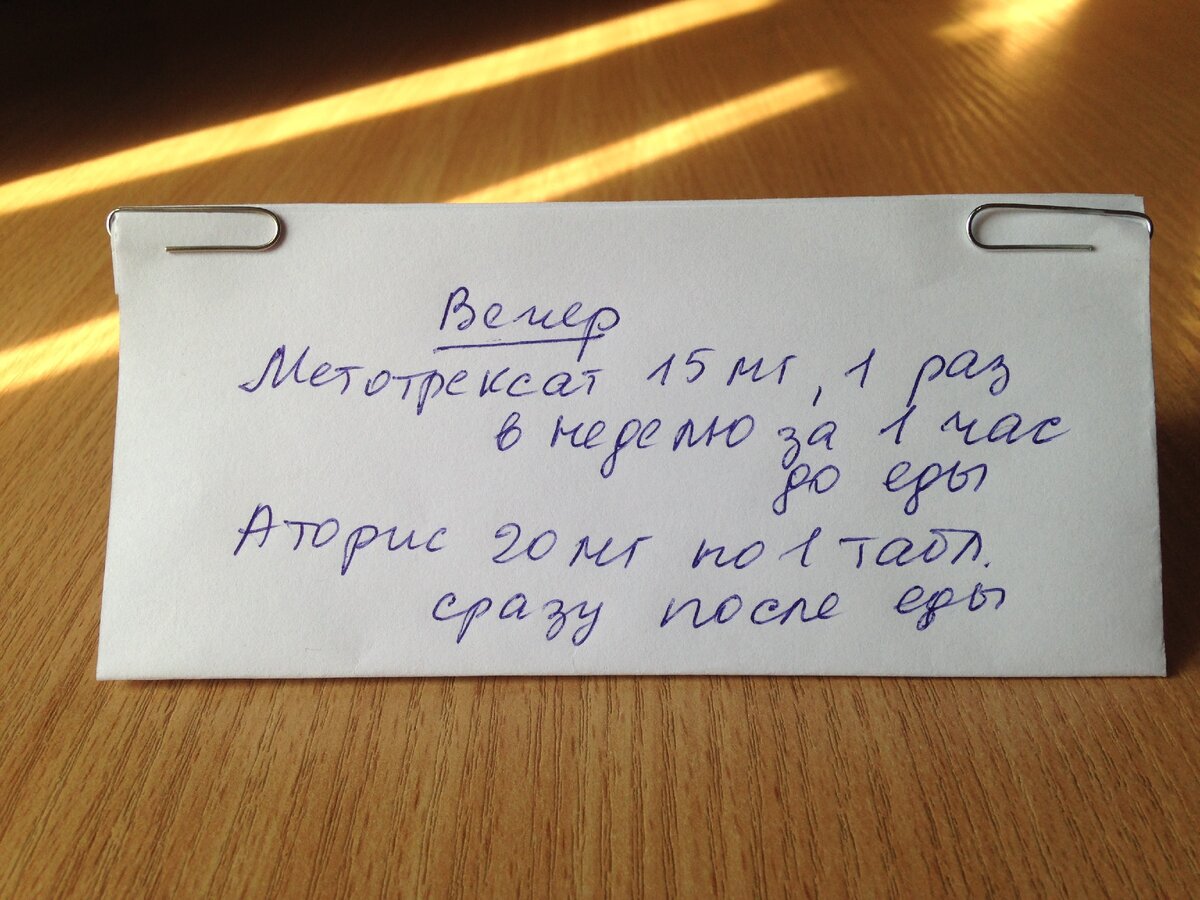 Вечер
Метотрексат 15 мг, 1 раз
в неделю за 1 час
до еды
Аторис 20 мг по 1 табл.
сразу после еды